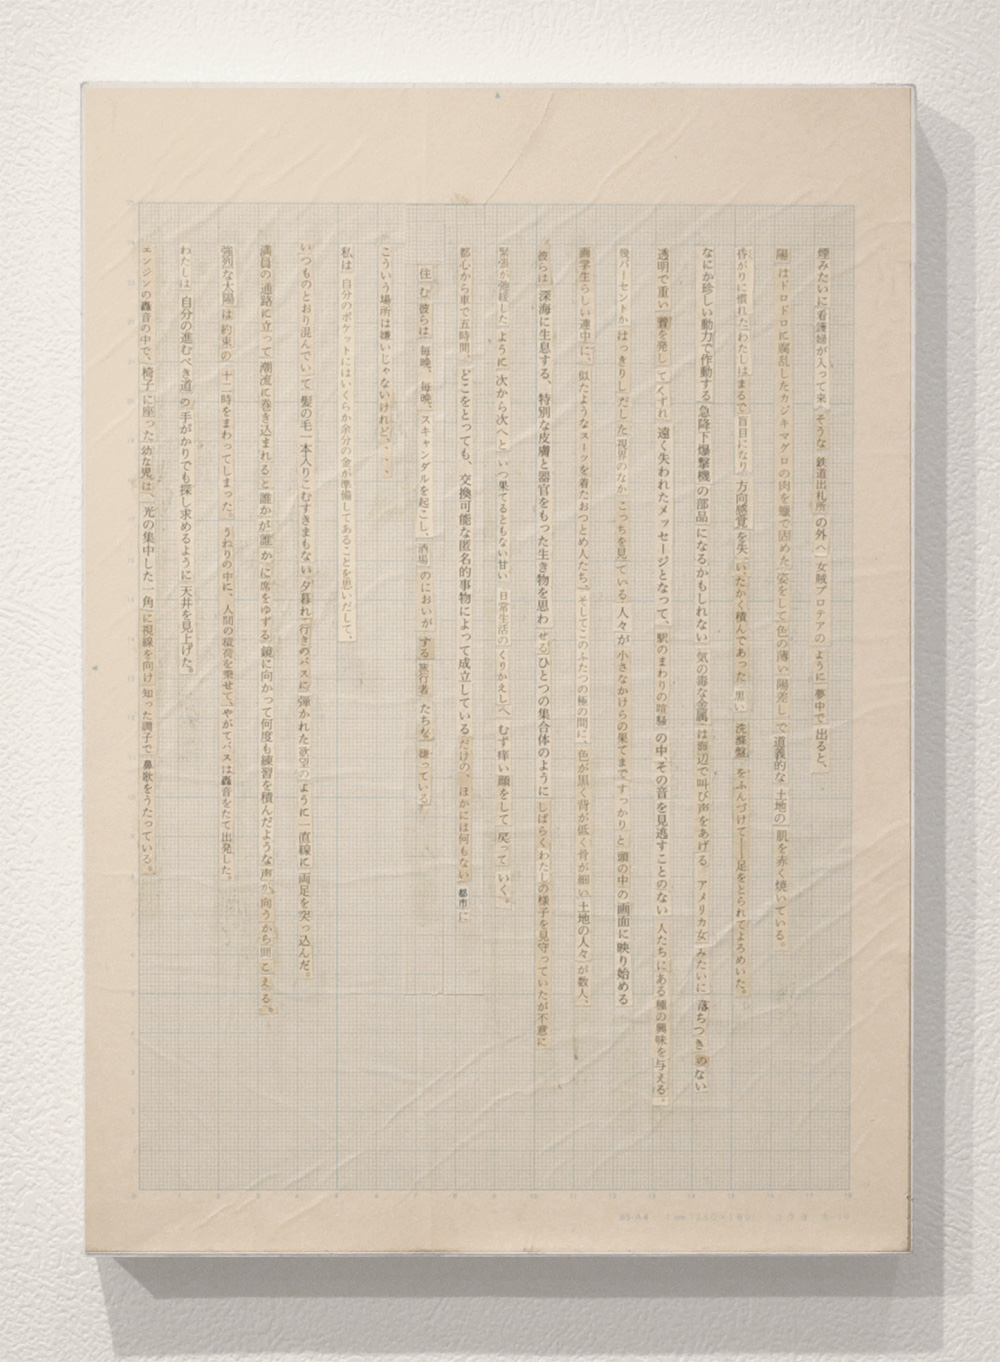 煙みたいに看護婦が入って来そうな鉄道出札所の外へ女賊プロテアのように夢中で出ると、
陽はドロドロに腐乱したカジキマグロの肉を蠟で固めた姿をして色の薄い陽差しで道義的な土地の肌を赤く焼いている。
昏がりに慣れたわたしはまるで盲目になり方向感覚を失いたかく積んであった黒い洗滌盤をふんづけて――足をとられてよろめいた。
なにか珍しい動力で作動する急降下爆撃機の部品になるかもしれない気の毒な金属は海辺で叫び声をあげるアメリカ女みたいに落ちつきのない
透明で重い音を発してくずれ遠く失われたメッセージとなって、駅のまわりの喧騒の中その音を見逃すことのない人たちにある種の興味を与える。
幾パーセントかはっきりしだした視界のなかこっちを見ている人々が小さなかけらの果てまですっかりと頭の中の画面に映り始める
画学生らしい連中に、似たようなスーツを着たおつとめ人たち。そしてこのふたつの極の間に、色が黒く背が低く骨が細い土地の人々が数人、
彼らは深海に生息する、特別な皮膚と器官をもった生き物を思わせるひとつの集合体のようにしばらくわたしの様子を見守っていたが不意に
緊張が弛緩したように次から次へといつ果てるともない甘い日常生活のくりかえしへむず痒い顔をして戻っていく。
都心から車で五時間、どこをとっても、交換可能な匿名的事物によって成立しているだけの、ほかには何もない都市に
住む彼らは毎晩、毎晩、スキャンダルを起こし、酒場のにおいがする旅行者たちを嫌っている。
こういう場所は嫌いじゃないけれど、・・・
私は自分のポケットにはいくらか余分の金が準備してあることを思いだして、
いつものとおり混んでいて髪の毛一本入りこむすきまもない夕暮れ行きのバスに弾かれた欲望のように一直線に両足を突っ込んだ。
満員の通路に立って潮流に巻き込まれると誰かが誰かに席をゆずる鏡に向かって何度も練習を積んだような声が向うから聞こえる。
強烈な太陽は約束の十二時をまわってしまった。うねりの中に、人間の積荷を乗せて、やがてバスは轟音をたて出発した。
わたしは自分の進むべき道の手がかりでも探し求めるように天井を見上げた。
エンジンの轟音の中で、椅子に座った幼な児は、光の集中した一角に視線を向け知った調子で鼻歌をうたっている。